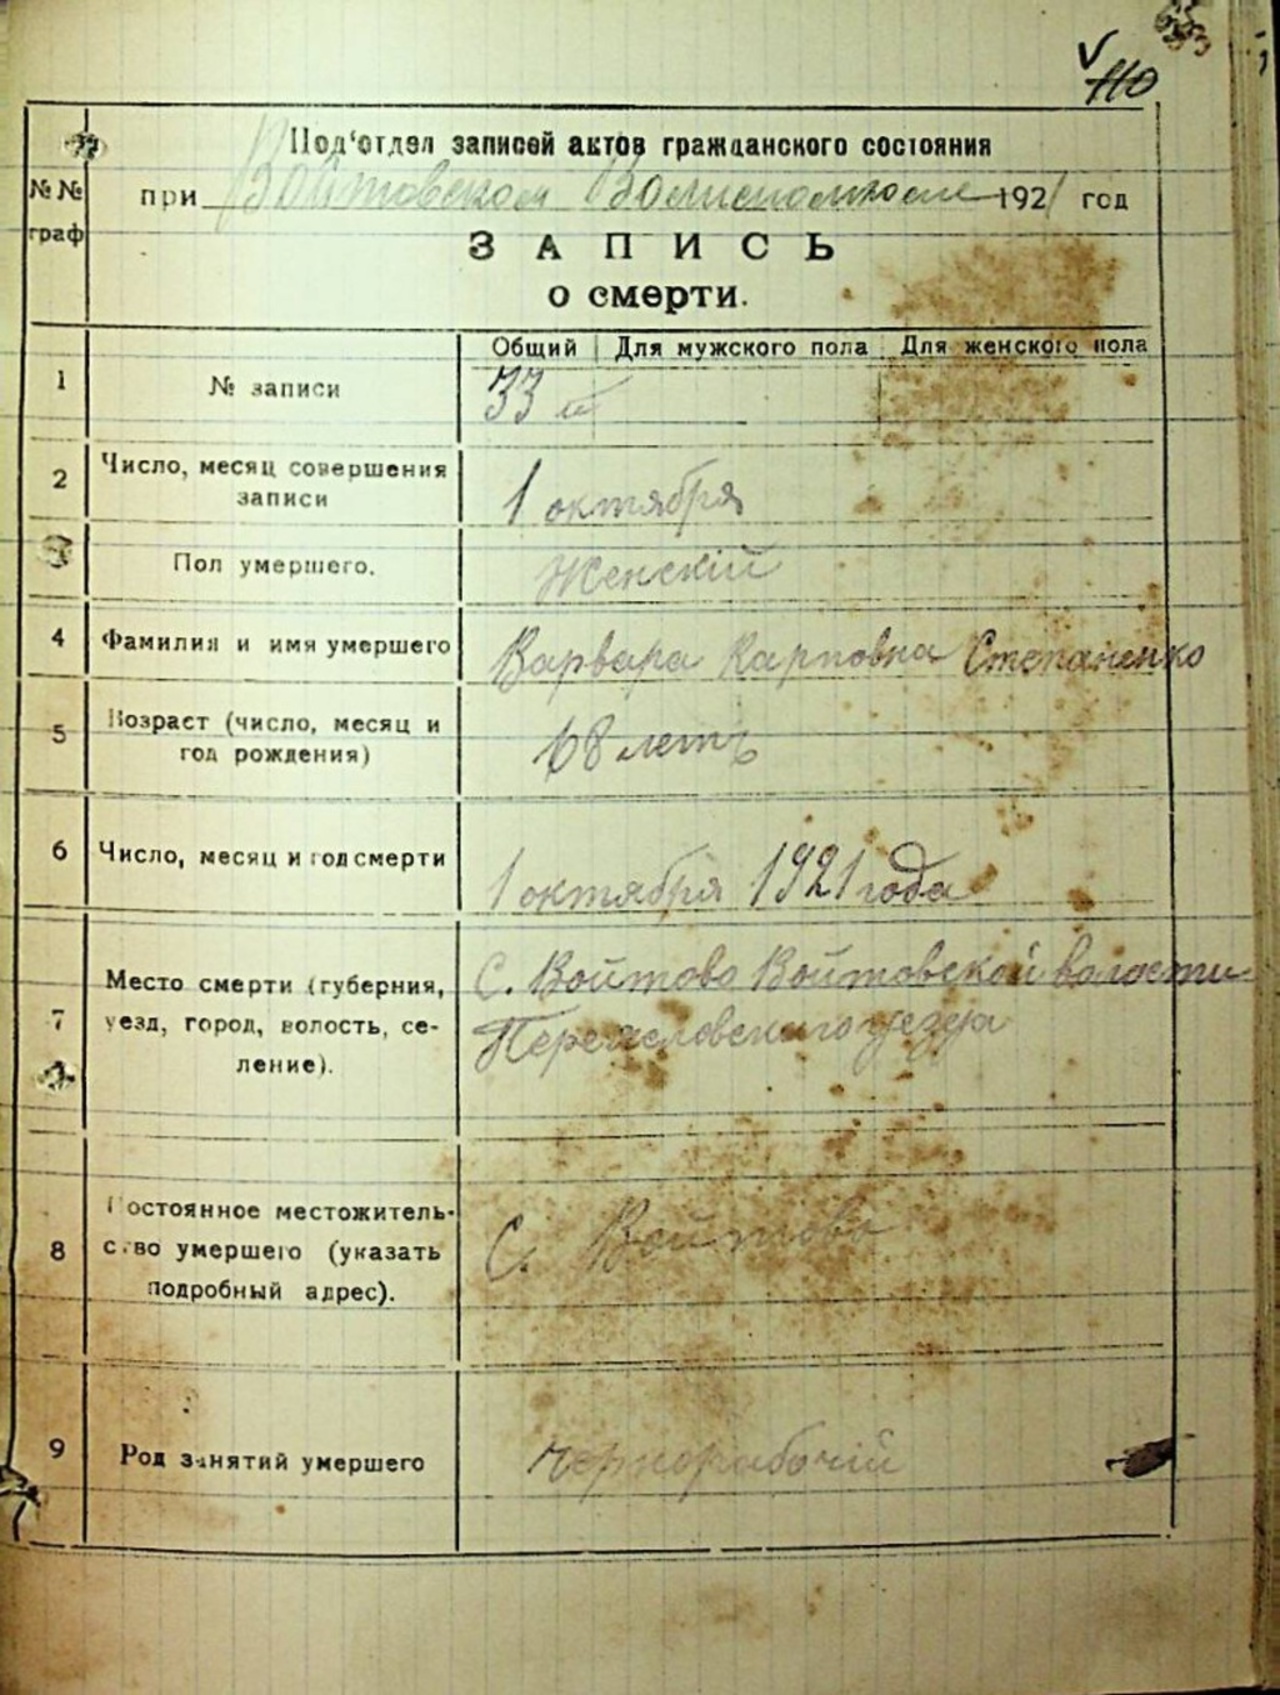 110
Под'отдел записей актов гражданского состояния
№№ граф
при Войтовском Волисполкоме 1921 год
ЗАПИСЬ
о смерти.
Общий Для мужского пола Для женского пола
1 № записи 33
2 Число, месяц совершения
записи
1 октября
Пол умершего.
Женскій
4 Фамилия и имя умершего Варвара Карповна Степаненко
5 Возраст (число, месяц и
год рождения)
68 летъ
6 Число, месяц и год смерти
1 октября 1921 года
7 Место смерти (губерния,
уезд, город, волость, се-
ление).
С. Войтово Войтовской волости
Переясловского уезда
8 Постоянное местожитель-
ство умершего (указать
подробный адрес).
С. Войтово
9 Род занятий умершего
чернорабочій